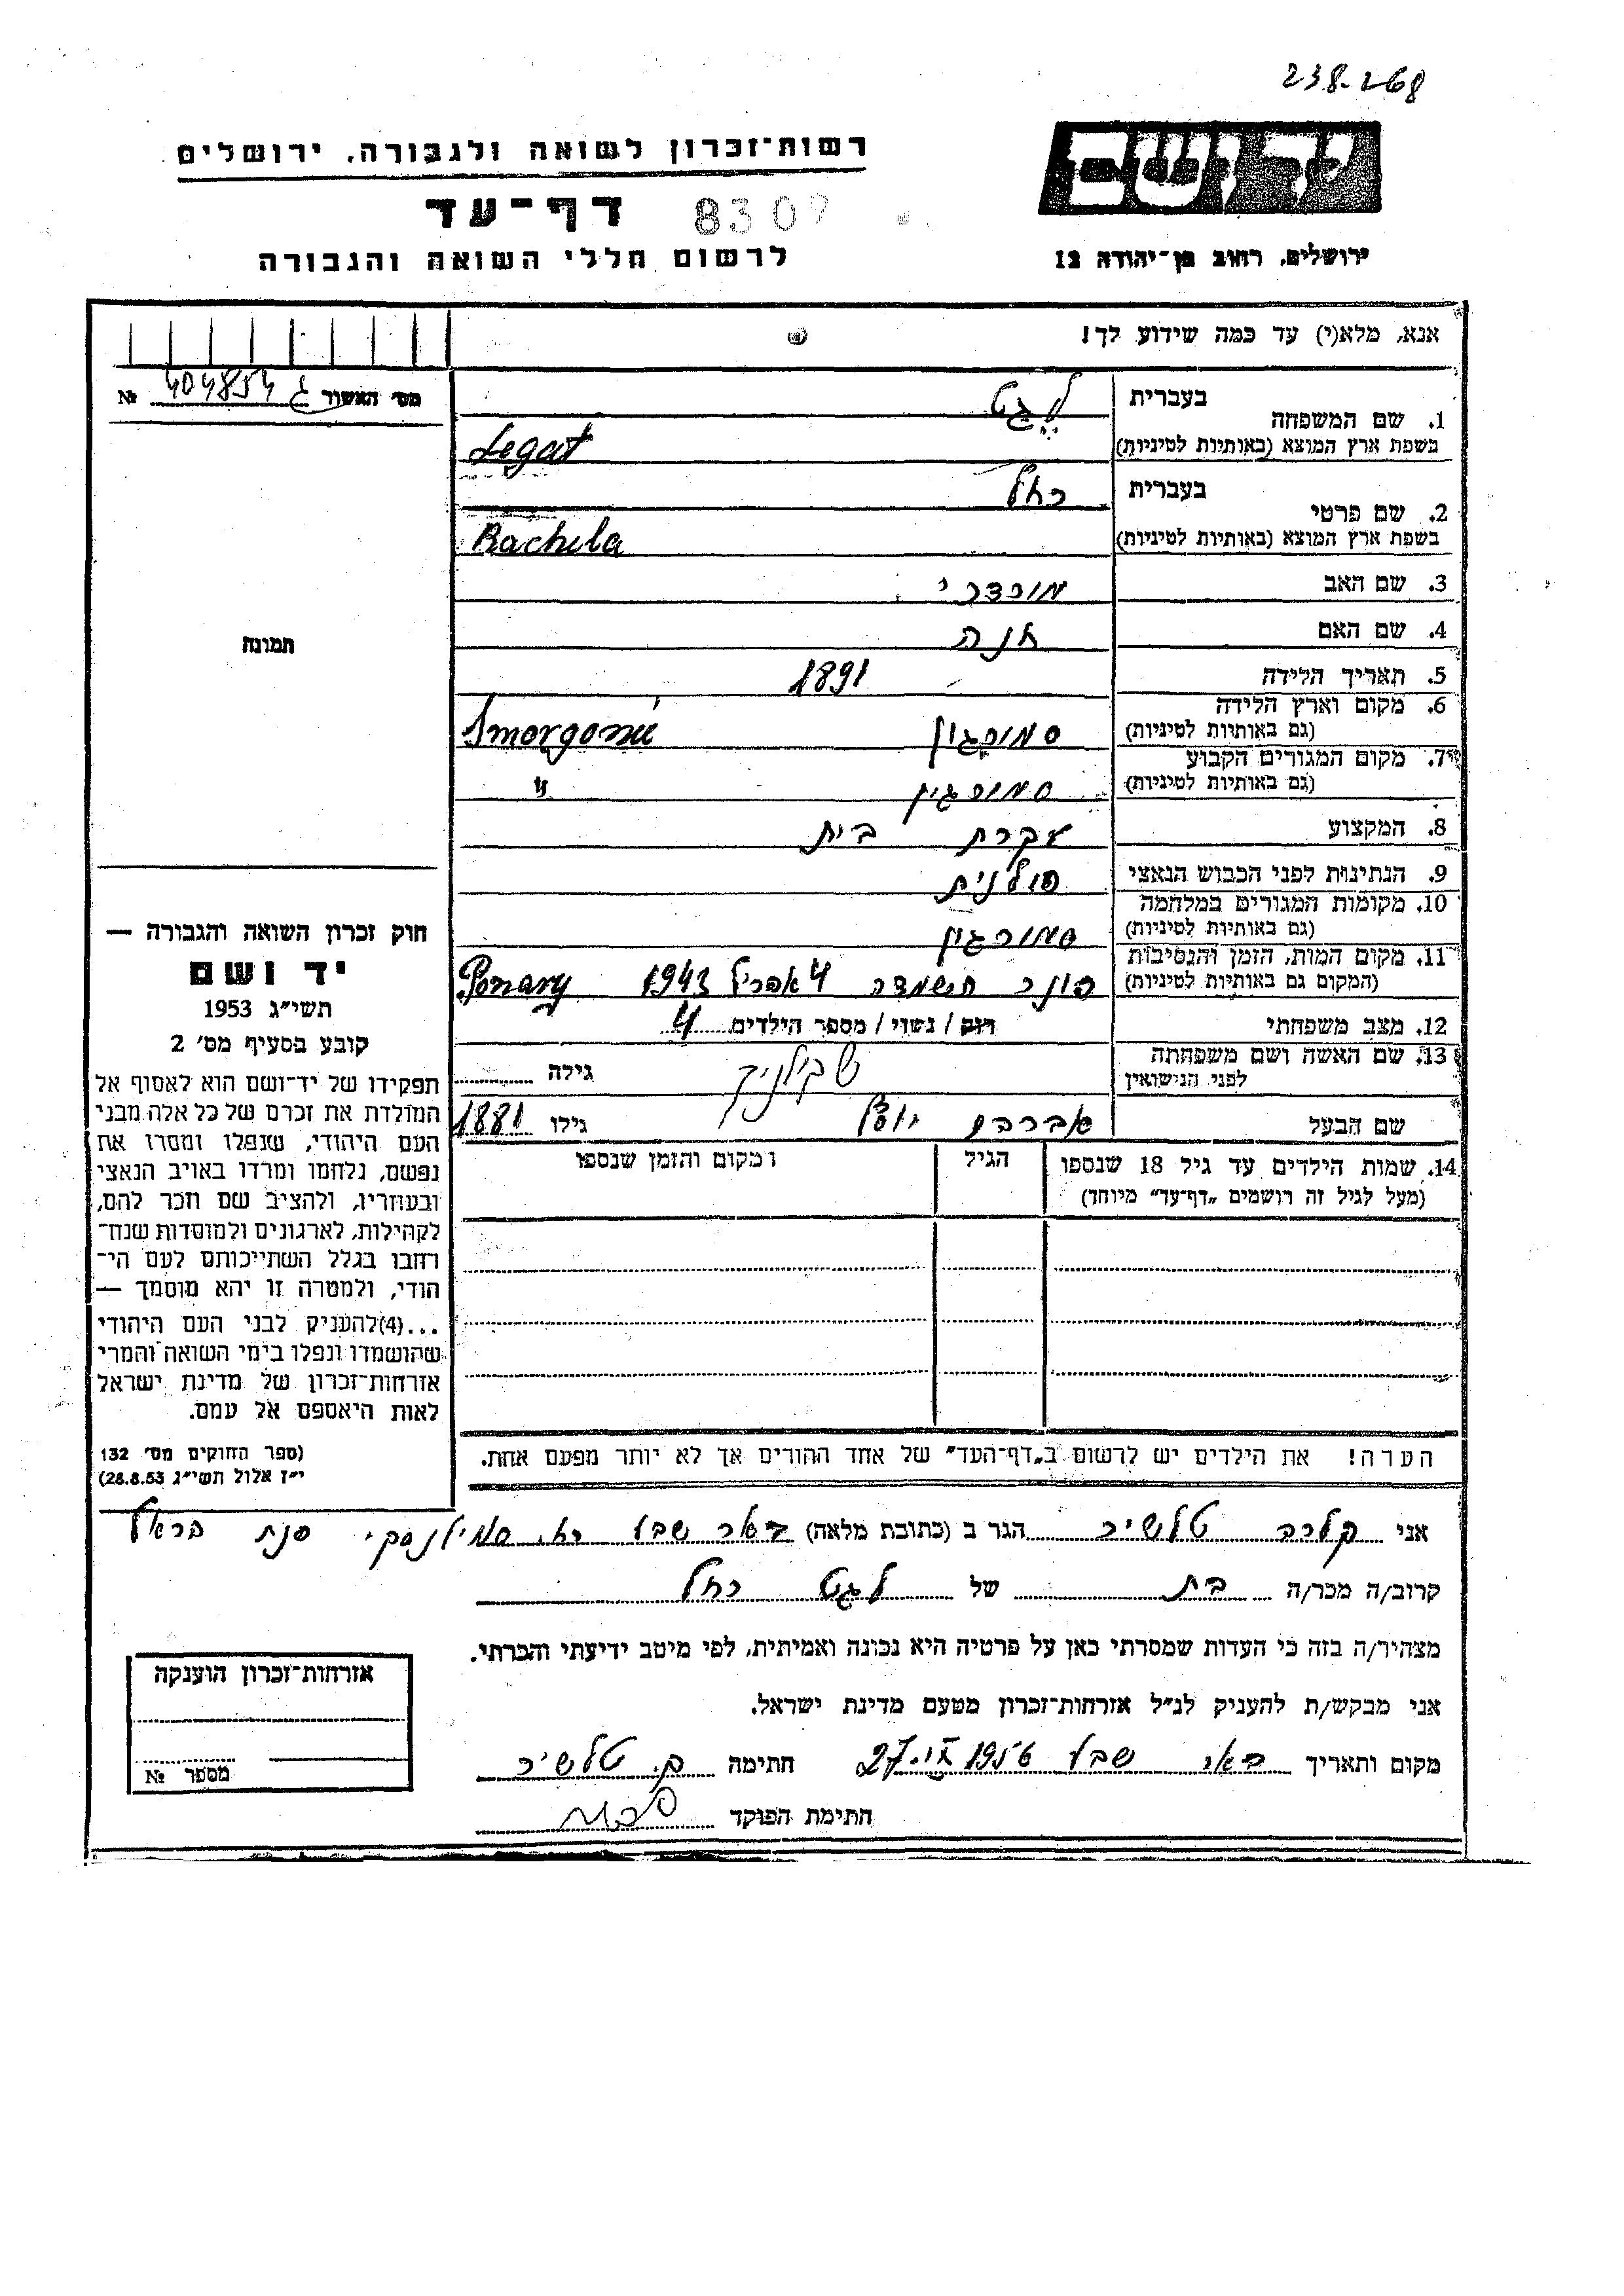 238.268
רשות־זכרון לשואה ולגבורה, ירושלים
יד ושם
דף־עד 8307
לרשום חללי השואה והגבורה
ירושלים, רחוב בן־יהודה 12
אנא, מלא(י) עד כמה שידוע לך!
מס׳ האשור ג 404854 №
תמונה
בעברית לגט
1. שם המשפחה
בשפת ארץ המוצא (באותיות לטיניות) Legat
בעברית רחל
2. שם פרטי
בשפת ארץ המוצא (באותיות לטיניות) Rachela
3. שם האב מורדכי
4. שם האם חנה
5. תאריך הלידה 1891
6. מקום וארץ הלידה
(גם באותיות לטיניות) סמורגון Smorgonie
7. מקום המגורים הקבוע
(גם באותיות לטיניות) סמורגון "
8. המקצוע עקרת בית
9. הנתינות לפני הכבוש הנאצי פולנית
10. מקומות המגורים במלחמה
(גם באותיות לטיניות) סמורגון
11. מקום המות, הזמן והנסיבות
(המקום גם באותיות לטיניות) פונר הושמדה 4 אפריל 1943 Ponary
12. מצב משפחתי רוק / נשוי / מספר הילדים 4
13. שם האשה ושם משפחתה
לפני הנישואין גילה
שם הבעל אברהם יוסף גילו 1881
14. שמות הילדים עד גיל 18 שנספו
(מעל לגיל זה רושמים „דף־עד” מיוחד)
הגיל
המקום והזמן שנספו
הערה! את הילדים יש לרשום ב„דף־העד” של אחד ההורים אך לא יותר מפעם אחת.
חוק זכרון השואה והגבורה —
יד ושם
תשי״ג 1953
קובע בסעיף מס׳ 2
תפקידו של יד־ושם הוא לאסוף אל
המולדת את זכרם של כל אלה מבני
העם היהודי, שנפלו ומסרו את
נפשם, נלחמו ומרדו באויב הנאצי
ובעוזריו, ולהציב שם וזכר להם,
לקהילות, לארגונים ולמוסדות שנח־
רבו בגלל השתייכותם לעם הי־
הודי, ולמטרה זו יהא מוסמך —
...(4)להעניק לבני העם היהודי
שהושמדו ונפלו בימי השואה והמרי
אזרחות־זכרון של מדינת ישראל
לאות היאספם אל עמם.
(ספר החוקים מס׳ 132
י״ז אלול תשי״ג 28.8.53)
אני קלרה טלשיר הגר ב (כתובת מלאה) באר שבע רח. סמילנסקי
קרוב/ה מכר/ה בת של לגט רחל
מצהיר/ה בזה כי העדות שמסרתי כאן על פרטיה היא נכונה ואמיתית, לפי מיטב ידיעתי והכרתי.
אני מבקש/ת להעניק לנ״ל אזרחות־זכרון מטעם מדינת ישראל.
מקום ותאריך באר שבע 27.IX.1956 חתימה ק. טלשיר
חתימת הפוקד
אזרחות־זכרון הוענקה
מספר №